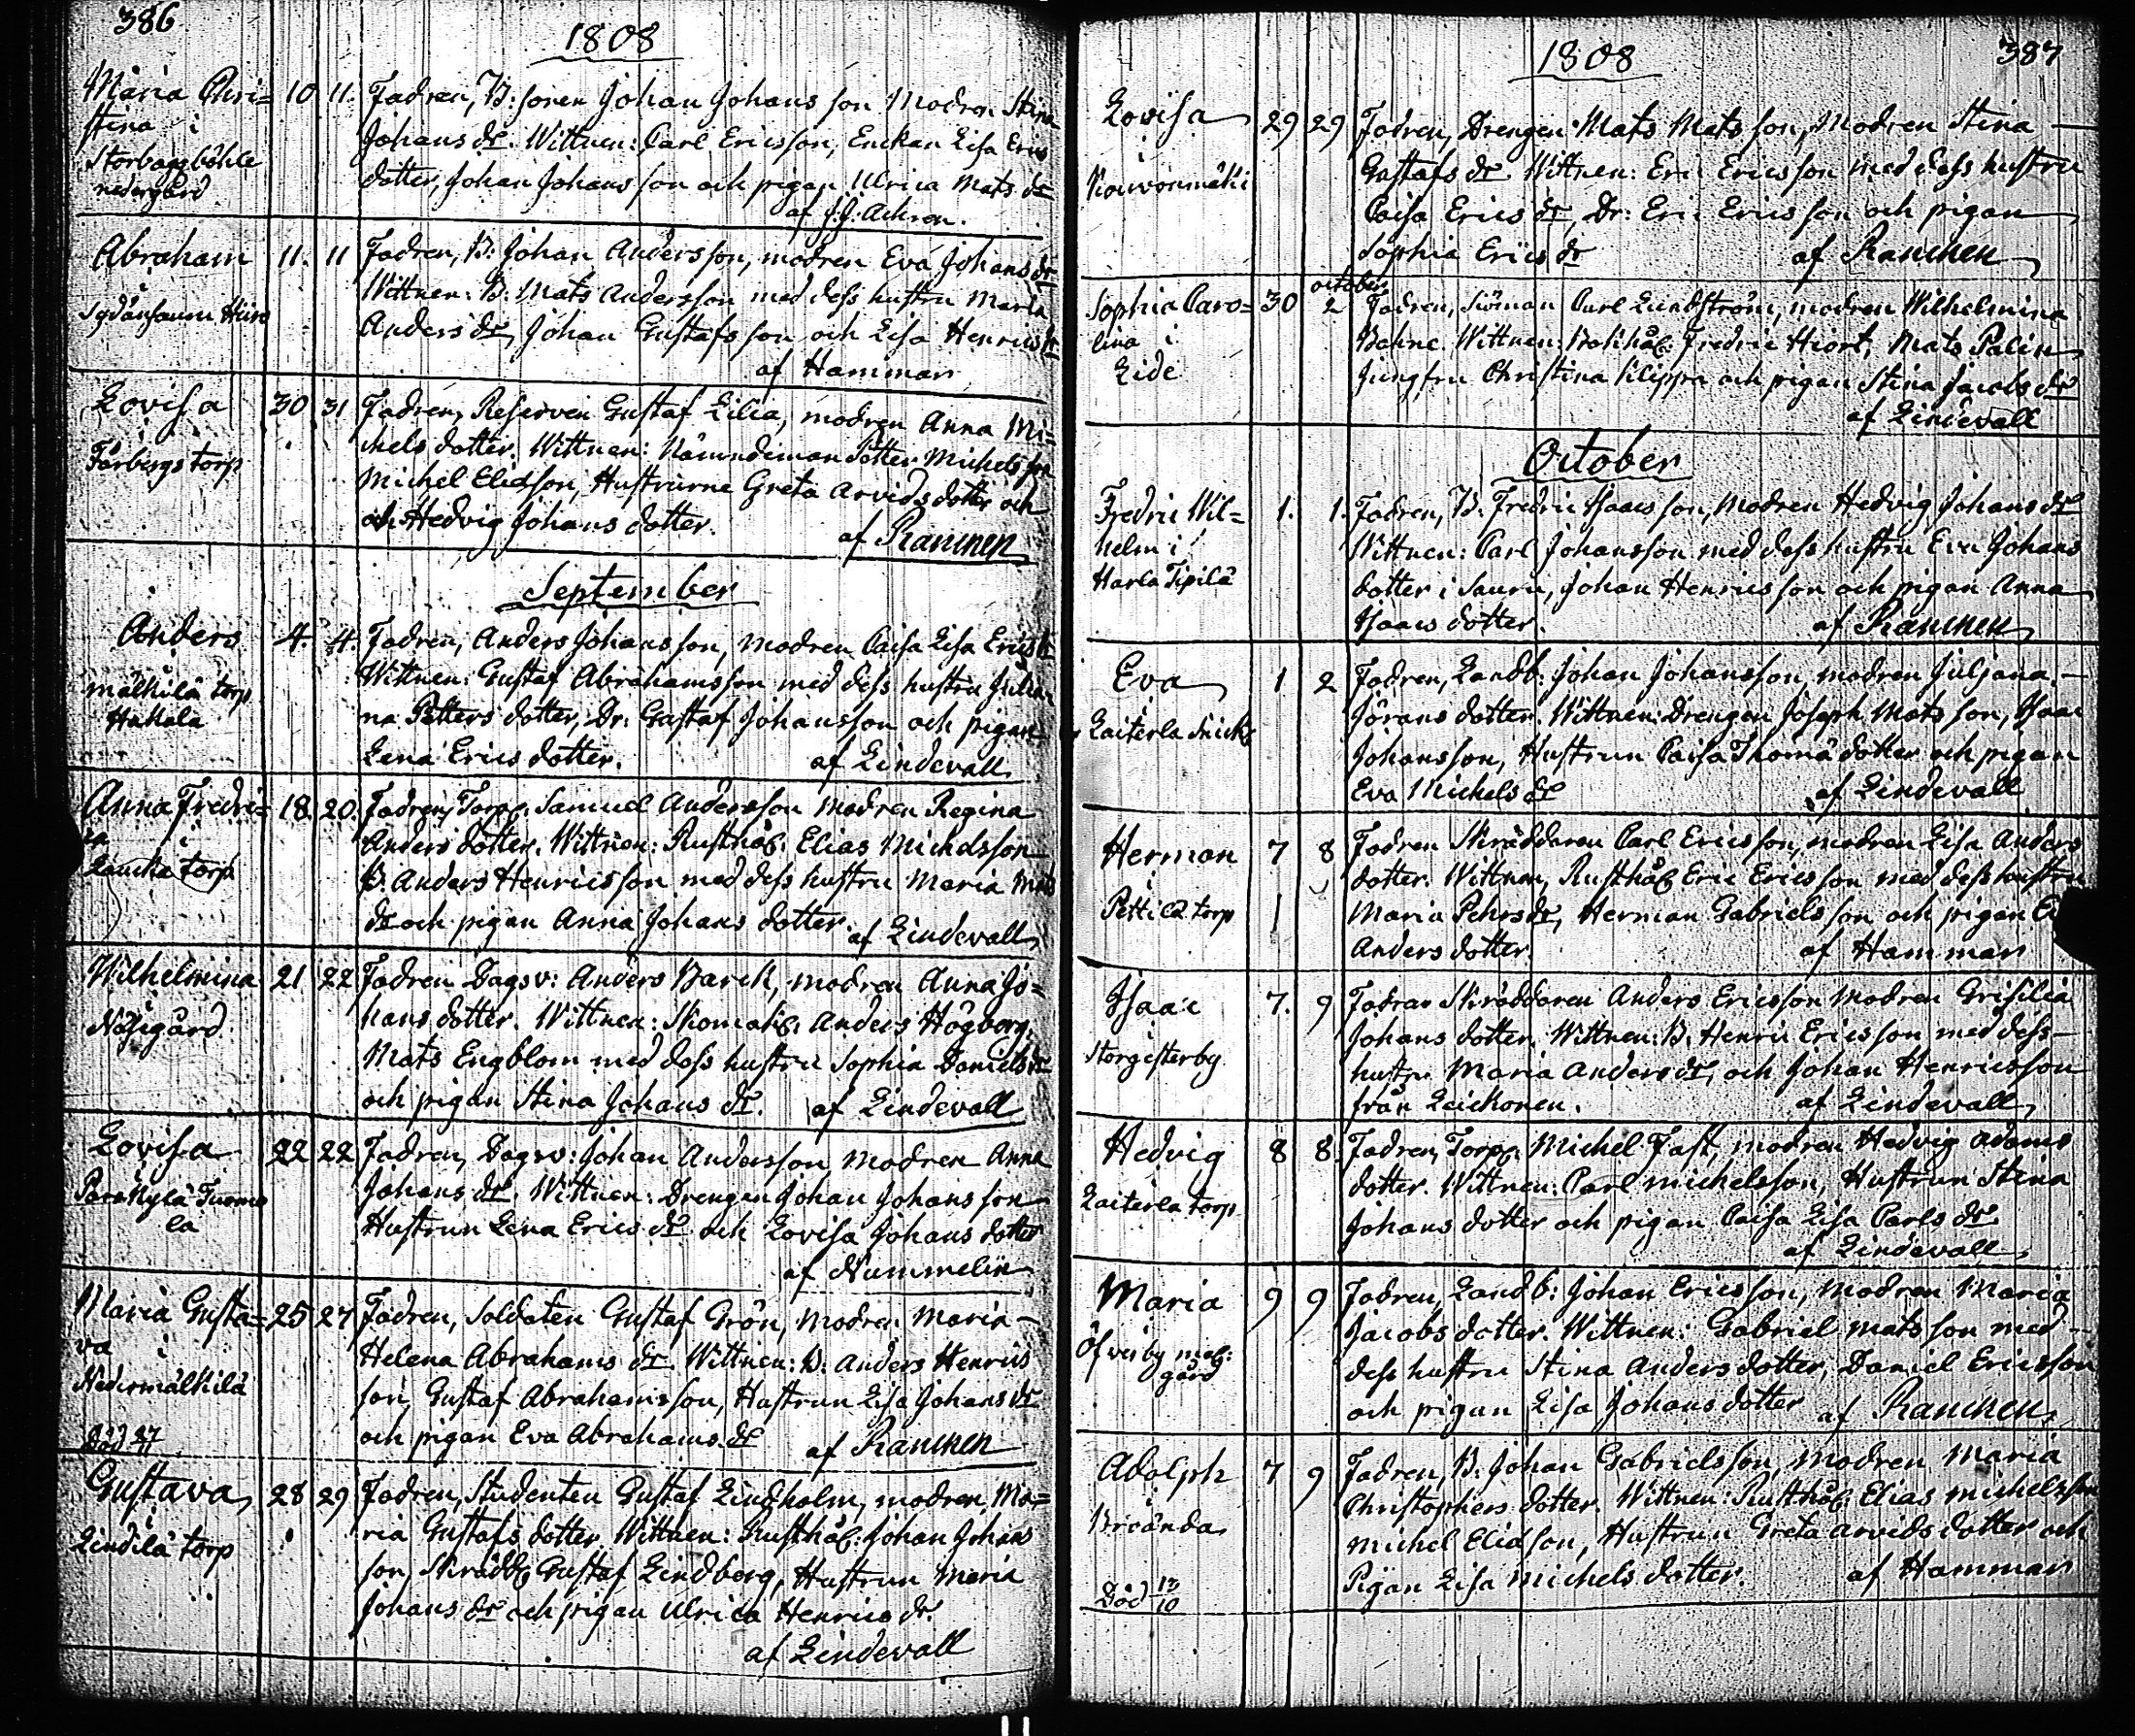 386
1808
Maria Chri= 10 11. Fadren, B: sonen Johan Johans son Modren Stina
stina i Johans dr. Wittnen: Carl Ericsson, Enckan Lisa Erics
Storbaggböhle dotter, Johan Johans son och pigan Ulrica Mats dr
nedergård af J: J: Achren.
Abraham 11. 11 Fadren, B: Johan Andersson, modren Eva Johans dr
i Wittnen: B: Mats Andersson med dess hustru Maria
Anders dr, Johan Gustafs son och Lisa Henrics dr
af Hammar
Lovisa 30 31 Fadren, Reserven Gustaf Lilia, modren Anna Mi=
i chels dotter. Wittnen: Nämndeman Petter Michels son
Färbergs torp Michel Eliæson, Hustrurne Greta Arvids dotter och
och Hedvig Johans dotter.
af Rancken
September
Anders 4. 4. Fadren, Anders Johans son, modren Caisa Lisa Erics dr
i Wittnen: Gustaf Abrahamsson med dess hustru Julia
mälkilä torp na Petters dotter, Dr: Gustaf Johansson och pigan
Hakala Lena Erics dotter. af Lindevall
Anna Fredri= 18. 20. Fadren, Torp. Samuel Andersson Modren Regina
ca i Anders dotter. Wittnen: Rusthål. Elias Michelsson
Lancka torp B. Anders Henricsson med dess hustru Maria Mats
dr och pigan Anna Johans dotter. af Lindevall
Wilhelmina 21 22 Fadren Dagsv: Anders Barck, modren Anna Jo=
Näsegård hans dotter. Wittnen: Skomak. Anders Högborg,
Mats Engblom med dess hustru Sophia Daniels dr
och pigan Stina Johans dr. af Lindevall
Lovisa 22 22 Fadren, Dagsv: Johan Andersson Modren Anna
i Johans dr. Wittnen: Drengen Johan Johans son
Parakylä Tuomo Hustrun Lena Erics dr och Lovisa Johans dotter
la af Nummelin
Maria Gusta= 25 27 Fadren, Soldaten Gustaf Grön, Modren Maria
va i Helena Abrahams dr. Wittnen: B: Anders Henrics
Nedermälkilä son, Gustaf Abrahamsson, Hustrun Lisa Johans dr
och pigan Eva Abrahams dr af Rancken
Död 27/11
Gustava 28 29 Fadren, Studenten Gustaf Lindholm, modren Ma=
i ria Gustafs dotter. Wittnen: Rusthål: Johan Johans
Lindilä torp son, Skrädd. Gustaf Lindberg, Hustrun Maria
Johans dr och pigan Ulrica Henrics dr.
af Lindevall
1808 387
Lovisa 29 29 Fadren, Drengen Mats Mats son, Modren Stina
i Gustafs dr. Wittnen: Eric Ericsson med dess hustru
Kouvonmäki Caisa Erics dr, Dr: Eric Erics son och pigan
Sophia Erics dr af Rancken
october
Sophia Caro= 30 2 Fadren, Siöman Carl Lundström, modren Wilhelmina
lina i Bahne. Wittnen: Bokhål. Fredric Hiort, Mats Palin
Lide Jungfru Christina Klippa och pigan Stina Jacobs dr
af Lindevall
October
Fredric Wil= 1. 1. Fadren, B. Fredric Isaacs son, Modren Hedvig Johans dr
helm i Wittnen: Carl Johansson med dess hustru Eva Johans
Harla Tipilä dotter i Sauru, Johan Henrics son och pigan Anna
Isaacs dotter. af Rancken
Eva 1 2 Fadren, Landb: Johan Johansson, modren Juljana
i Jörans dotter. Wittnen: Drengen Joseph Mats son, Isaac
Laiterla Johansson, Hustrun Caisa Thomæ dotter och pigan
Eva Michels dr af Lindevall
Herman 7 8 Fadren Skräddaren Carl Ericsson, modren Lisa Anders
i dotter. Wittnen, Rusthål. Eric Erics son med dess hustru
Pettilä torp Maria Pehrs dr, Herman Gabriels son och pigan
Anders dotter. af Hammar
Isaac 7. 9 Fadren Skräddaren Anders Ericsson Modren Grisilia
i Johans dotter. Wittnen: B. Henric Ericsson med dess
Storgesterby hustru Maria Anders dr, och Johan Henricsson
från Leickonen. af Lindevall
Hedvig 8 8. Fadren, Torp. Michel Fast, modren Hedvig Adams
i dotter. Wittnen: Carl michelsson, Hustrun Stina
Laiterla torp Johans dotter och pigan Caisa Lisa Carls dr.
af Lindevall
Maria 9 9 Fadren, Landb: Johan Erics son, Modren Maria
i Jacobs dotter. Wittnen: Gabriel Mats son med
Öfverby mel: dess hustru Stina Anders dotter, Daniel Ericsson
gård och pigan Lisa Johans dotter af Rancken
Adolph 7 9 Fadren, B: Johan Gabrielsson, modren Maria
i Christophers dotter. Wittnen: Rusthål. Elias michelsson
Broända michel Eliæson, Hustrun Greta Arvids dotter och
Pigan Lisa Michels dotter. af Hammar
Död 13/10